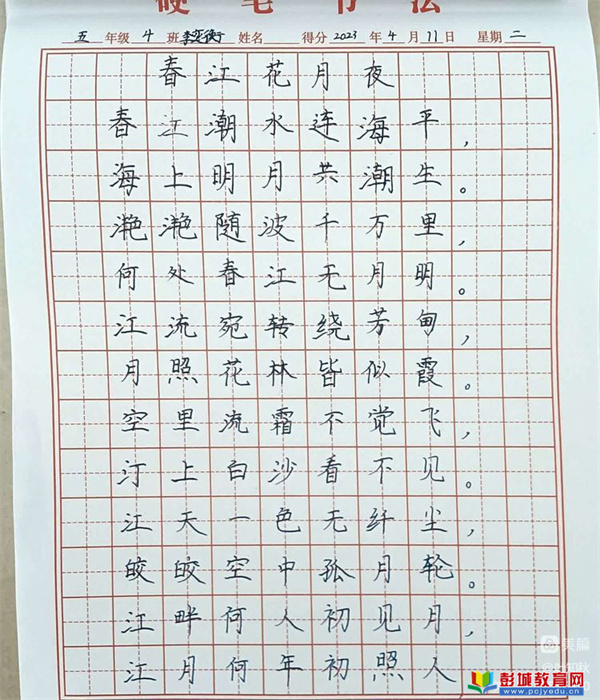 硬笔书法
五 年级 4 班 李奕衡 姓名 得分 2023 年 4 月 11 日 星期 二
春江花月夜
春江潮水连海平，
海上明月共潮生。
滟滟随波千万里，
何处春江无月明。
江流宛转绕芳甸，
月照花林皆似霞。
空里流霜不觉飞，
汀上白沙看不见。
江天一色无纤尘，
皎皎空中孤月轮。
江畔何人初见月，
江月何年初照人
美篇
彭城教育网
www.pcjyedu.cn